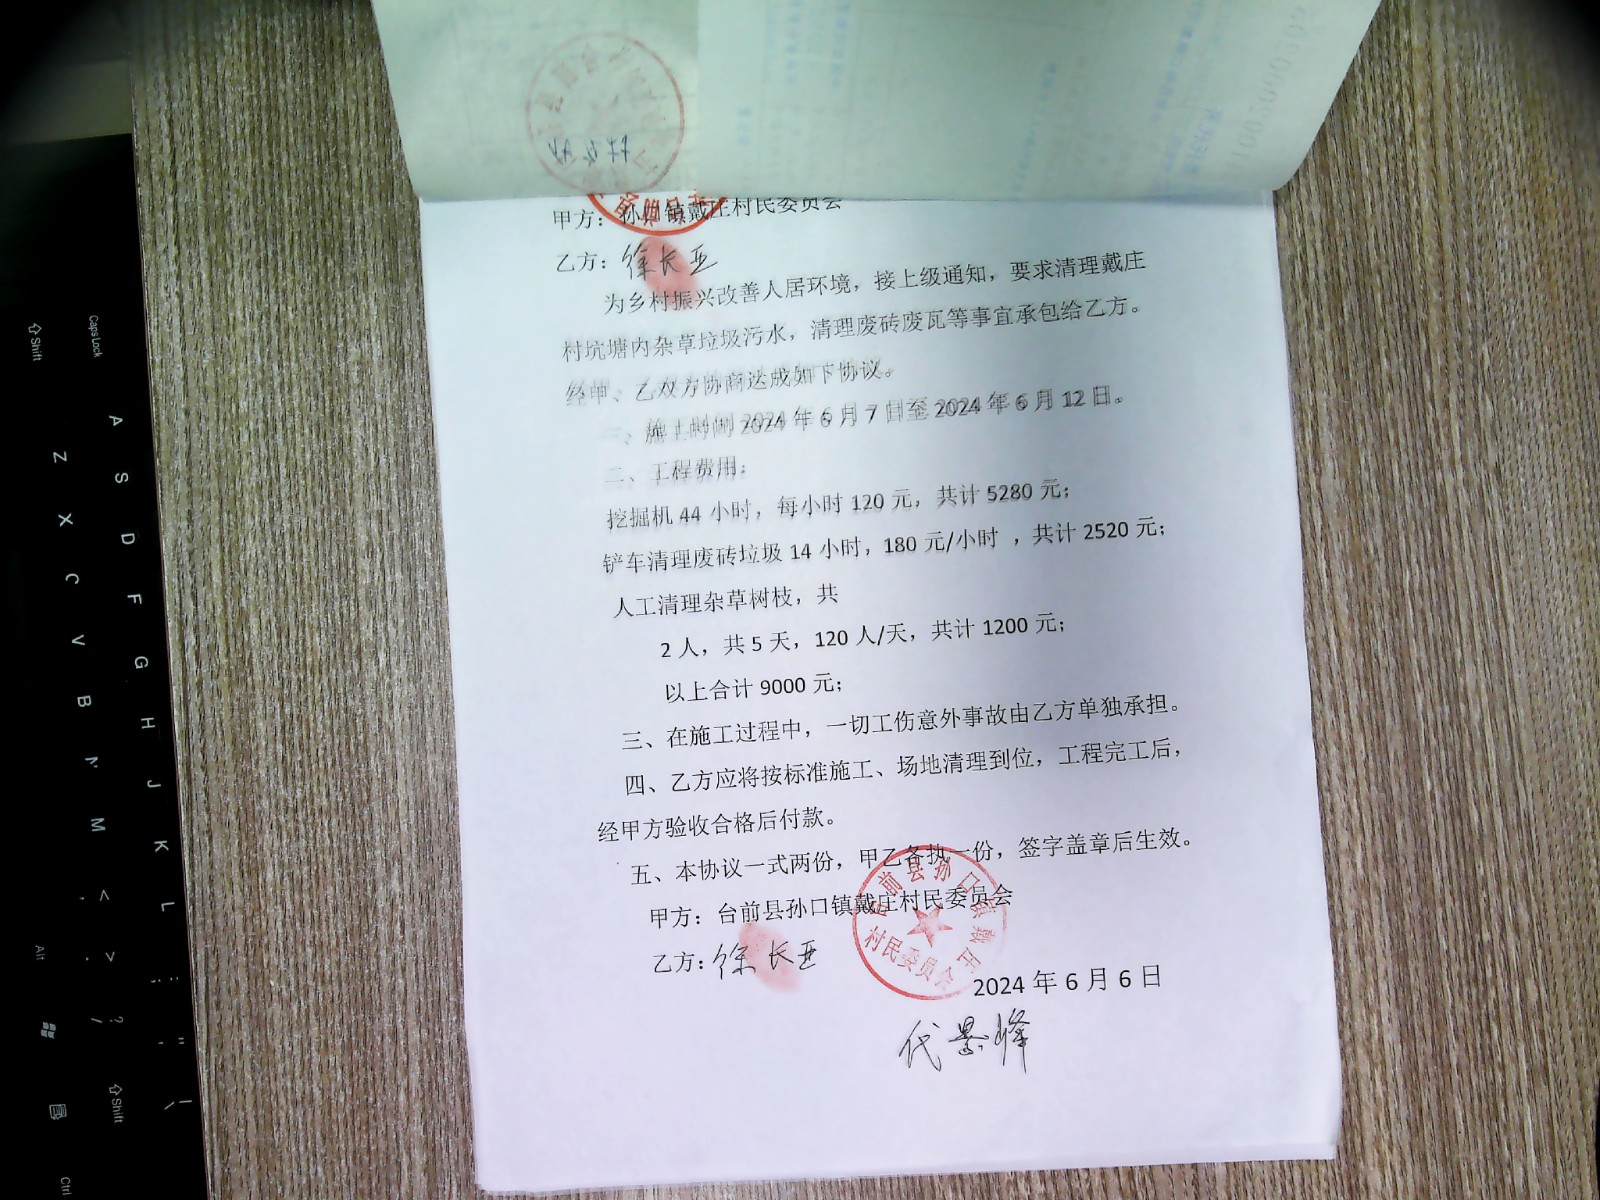 甲方：孙口镇戴庄村民委员会
乙方：徐长亚
为乡村振兴改善人居环境，接上级通知，要求清理戴庄
村坑塘内杂草垃圾污水，清理废砖废瓦等事宜承包给乙方。
经甲、乙双方协商达成如下协议。
一、施工时间 2024 年 6 月 7 日至 2024 年 6 月 12 日。
二、工程费用：
挖掘机 44 小时，每小时 120 元，共计 5280 元；
铲车清理废砖垃圾 14 小时，180 元/小时 ，共计 2520 元；
人工清理杂草树枝，共
2 人，共 5 天，120 人/天，共计 1200 元；
以上合计 9000 元；
三、在施工过程中，一切工伤意外事故由乙方单独承担。
四、乙方应将按标准施工、场地清理到位，工程完工后，
经甲方验收合格后付款。
五、本协议一式两份，甲乙各执一份，签字盖章后生效。
甲方：台前县孙口镇戴庄村民委员会
乙方：徐长亚
台前县孙口镇戴庄
村民委员会
2024 年 6 月 6 日
代景峰
Caps Lock
Shift
A
Z
S
X
D
C
F
V
G
B
H
N
J
M
K
<
,
L
>
.
:
;
?
/
"
'
Alt
Shift
\
Ctrl